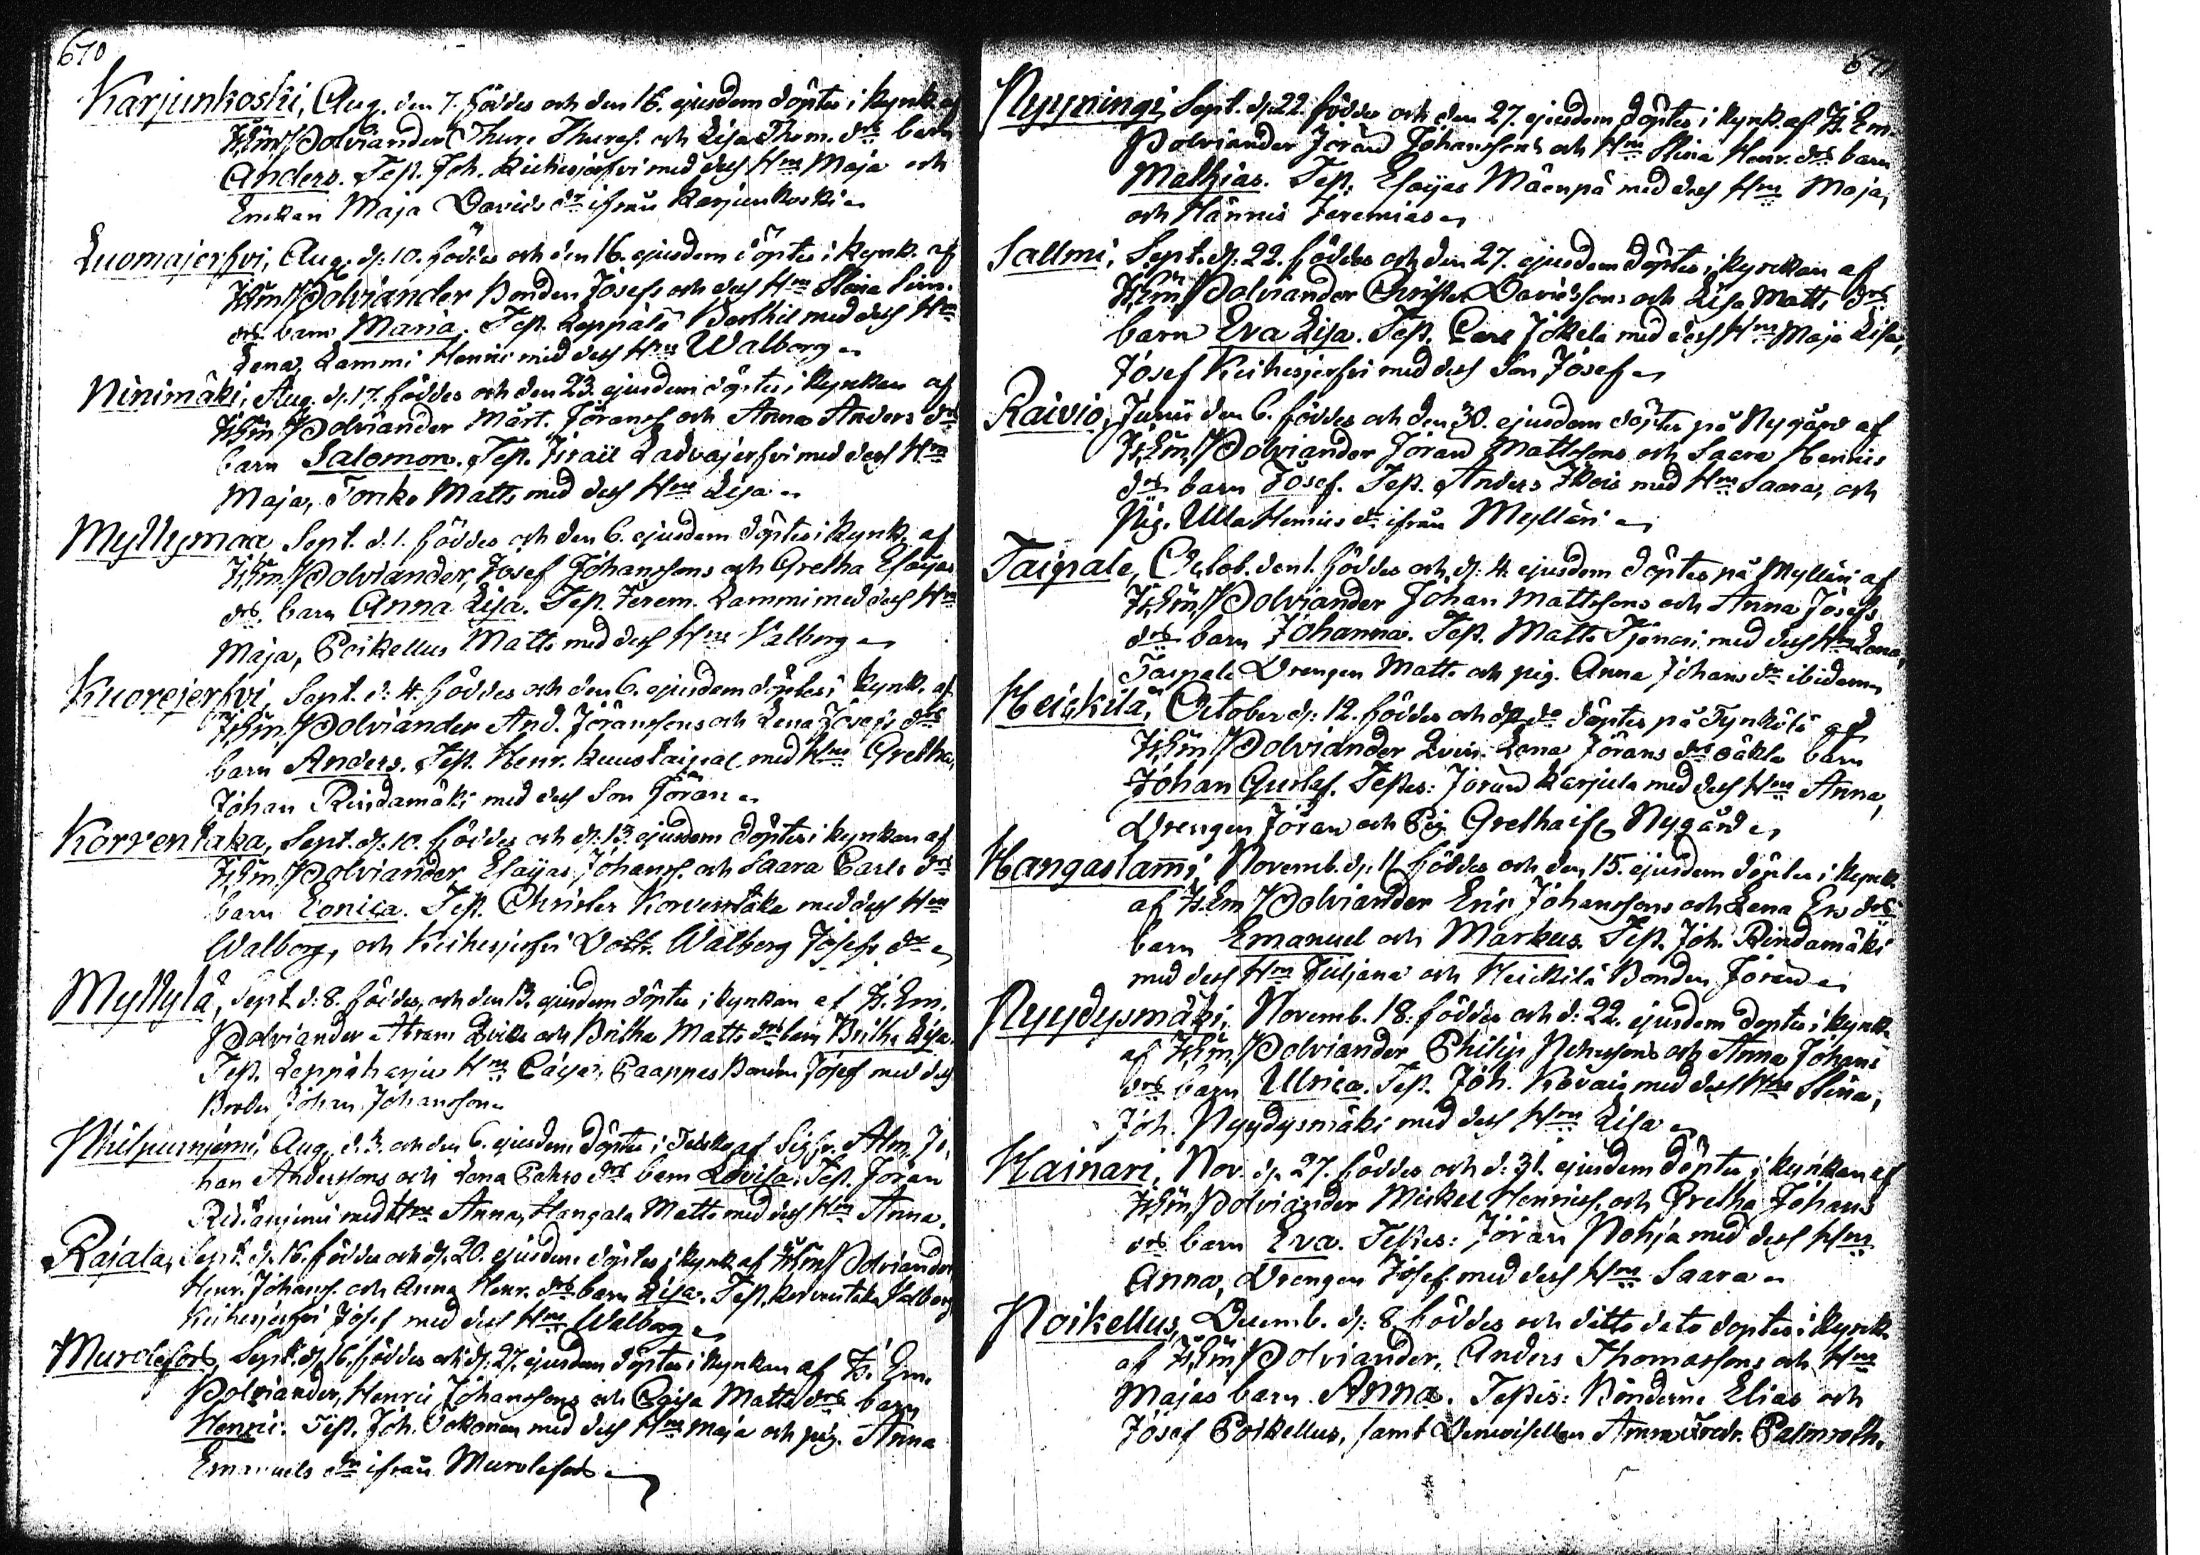 670
Karjunkoski, Aug. den 7. föddes och den 16. ejusdem döptes i kyrk. af
H. Em. Polviander Thure Thuress. och Lisa Thom. drs barn
Anders. Test. Joh. Keihesjerfvi med dess Hru Maja och
Enckan Maja Davids dr ifrån Karjunkoski
Luomajerfvi, Aug. d: 10. föddes och den 16. ejusdem döptes i kyrk. af
H. Em. Polviander Bonden Josefs och dess Hru Stina Sim.
drs barn Maria. Test. Leppälä Berthil med dess Hru
Lena, Lammi Henric med dess Hru Walborg
Ninimäki, Aug. d. 17. föddes och den 23. ejusdem döptes i kyrkan af
H. Em. Polviander Mårt. Jöranss. och Anna Anders drs
barn Salomon. Test. Israil Ladvajerfvi med dess Hru
Maja, Tonko Matts med dess Hru Lisa
Myllymaa, Sept. d. 1. föddes och den 6. ejusdem döptes i kyrk. af
H. Em. Polviander, Josef Johanssons och Gretha Esaijas
drs. barn Anna Lisa. Test. Jerem. Lammi med dess Hru
Maja, Poikellus Matts med dess Hru Valborg
Kuorejerfvi, Sept. d: 4. föddes och den 6. ejusdem döptes i kyrk. af
H. Em. Polviander And. Jöranssons och Lena Josefs drs
barn Anders. Test. Henr. Kuustaipal med Hru Gretha,
Johan Rindamäki med dess Son Jöran
Korventaka, Sept. d: 10. föddes och d: 13. ejusdem döptes i kyrkan af
H. Em. Polviander, Esaijas Johanss. och Saara Carls drs
barn Lonica. Test. Christer Korventaka med dess Hru
Walborg, och Keihesjerfvi Dott. Walborg Josefs dr
Myllylä, Sept. d: 8. föddes och den 13. ejusdem döptes i kyrkan af H. Em.
Polviander Abram och Britha Matts drs barn Britha Lisa.
Test. Leppäharju Hru Caisa, Paappas Bonden Josef med dess
Broder Johan Johansson
Aug. d. 3. och den 6. ejusdem döptes i af Sigfr. Alm, Jo-
han Anderssons och Lena drs barn Lovisa. Test. Jöran
med Hru Anna, Hangala Matts med dess Hru Anna.
Rajala, Sept. d: 16. föddes och d: 20. ejusdem döptes i kyrk. af H. Em. Polviander
Henr. Johanss. och Anna Henr. drs barn Lisa. Test. Korventaka Valborg
Keihesjerfvi Josef med dess Hru Walborg
Murolefors, Sept. d: 16. föddes och d: 27. ejusdem döptes i kyrkan af H. Em.
Polviander, Henric Johanssons och Caisa Matts drs barn
Henric. Test. Joh. med dess Hru Maja och pig. Anna
Emanuels dr ifrån Murolefors
671
Nyyningi, Sept. d: 22. föddes och den 27. ejusdem döptes i kyrk. af H. Em.
Polviander Jöran Johanssons och Hru Stina Henr. drs barn
Mathias. Test: Esaijas Mäenpä med dess Hru Maja,
och Hännis Jeremias
Sallmi, Sept. d: 22. föddes och den 27. ejusdem döptes i kyrckan af
H. Em. Polviander Christer Davidssons och Lisa Matts drs
barn Eva Lisa. Test. Carl Jokela med dess Hru Maja Lisa,
Josef Keihesjerfvi med dess Son Josef
Raivio, Junii den 6. föddes och den 30. ejusdem döptes på Nygård af
H. Em. Polviander Jöran Mattssons och Saara Henrics
drs barn Josef. Test. Anders med Hru Saara, och
Pig. Ulla Henrics dr ifrån Mylläri
Taipale, Octob. den 1. föddes och d: 4. ejusdem döptes på Mylläri af
H. Em. Polviander Johan Mattssons och Anna Josefs
drs barn Johanna. Test. Matts med dess Hru Lena,
Taipale Drengen Matts och pig. Anna Johans dr ibidem
Heickilä, October d: 12. föddes och döptes på Tynkölä af
H. Em. Polviander Lena Jörans drs oäkta barn
Johan Gustaf. Testes: Jöran Karjula med dess Hru Anna,
Drengen Jöran och Pig. Gretha ifr. Nygård
Hangaslam̄i, Novemb. d: 11. föddes och den 15. ejusdem döptes i kyrk.
af H. Em. Polviander Eric Johanssons och Lena Ers drs
barn Emanuel och Markus. Test. Joh. Rindamäki
med dess Hru Juljana och Heickilä Bonden Jöran
Nyydysmäki, Novemb. 18. föddes och d: 22. ejusdem döptes i kyrk.
af H. Em. Polviander Philip och Anna Johans
drs barn Ulrica. Test. Joh. med dess Hru Stina,
Joh. Nyydysmäki med dess Hru Lisa
Hainari, Nov. d: 27. föddes och d: 31. ejusdem döptes i kyrkan af
H. Em. Polviander Mickel Henricss. och Gretha Johans
drs barn Eva. Testes: Jöran Pohja med dess Hru
Anna, Drengen Josef med dess Hru Saara
Poikellus, Decemb. d: 8. föddes och ditto dato döptes i kyrk.
af H. Em. Polviander, Anders Thomassons och Hru
Majas barn Anna. Testes: Bönderne Elias och
Josef Poikellus, samt Demoisellen Anna Fredr. Palmroth.